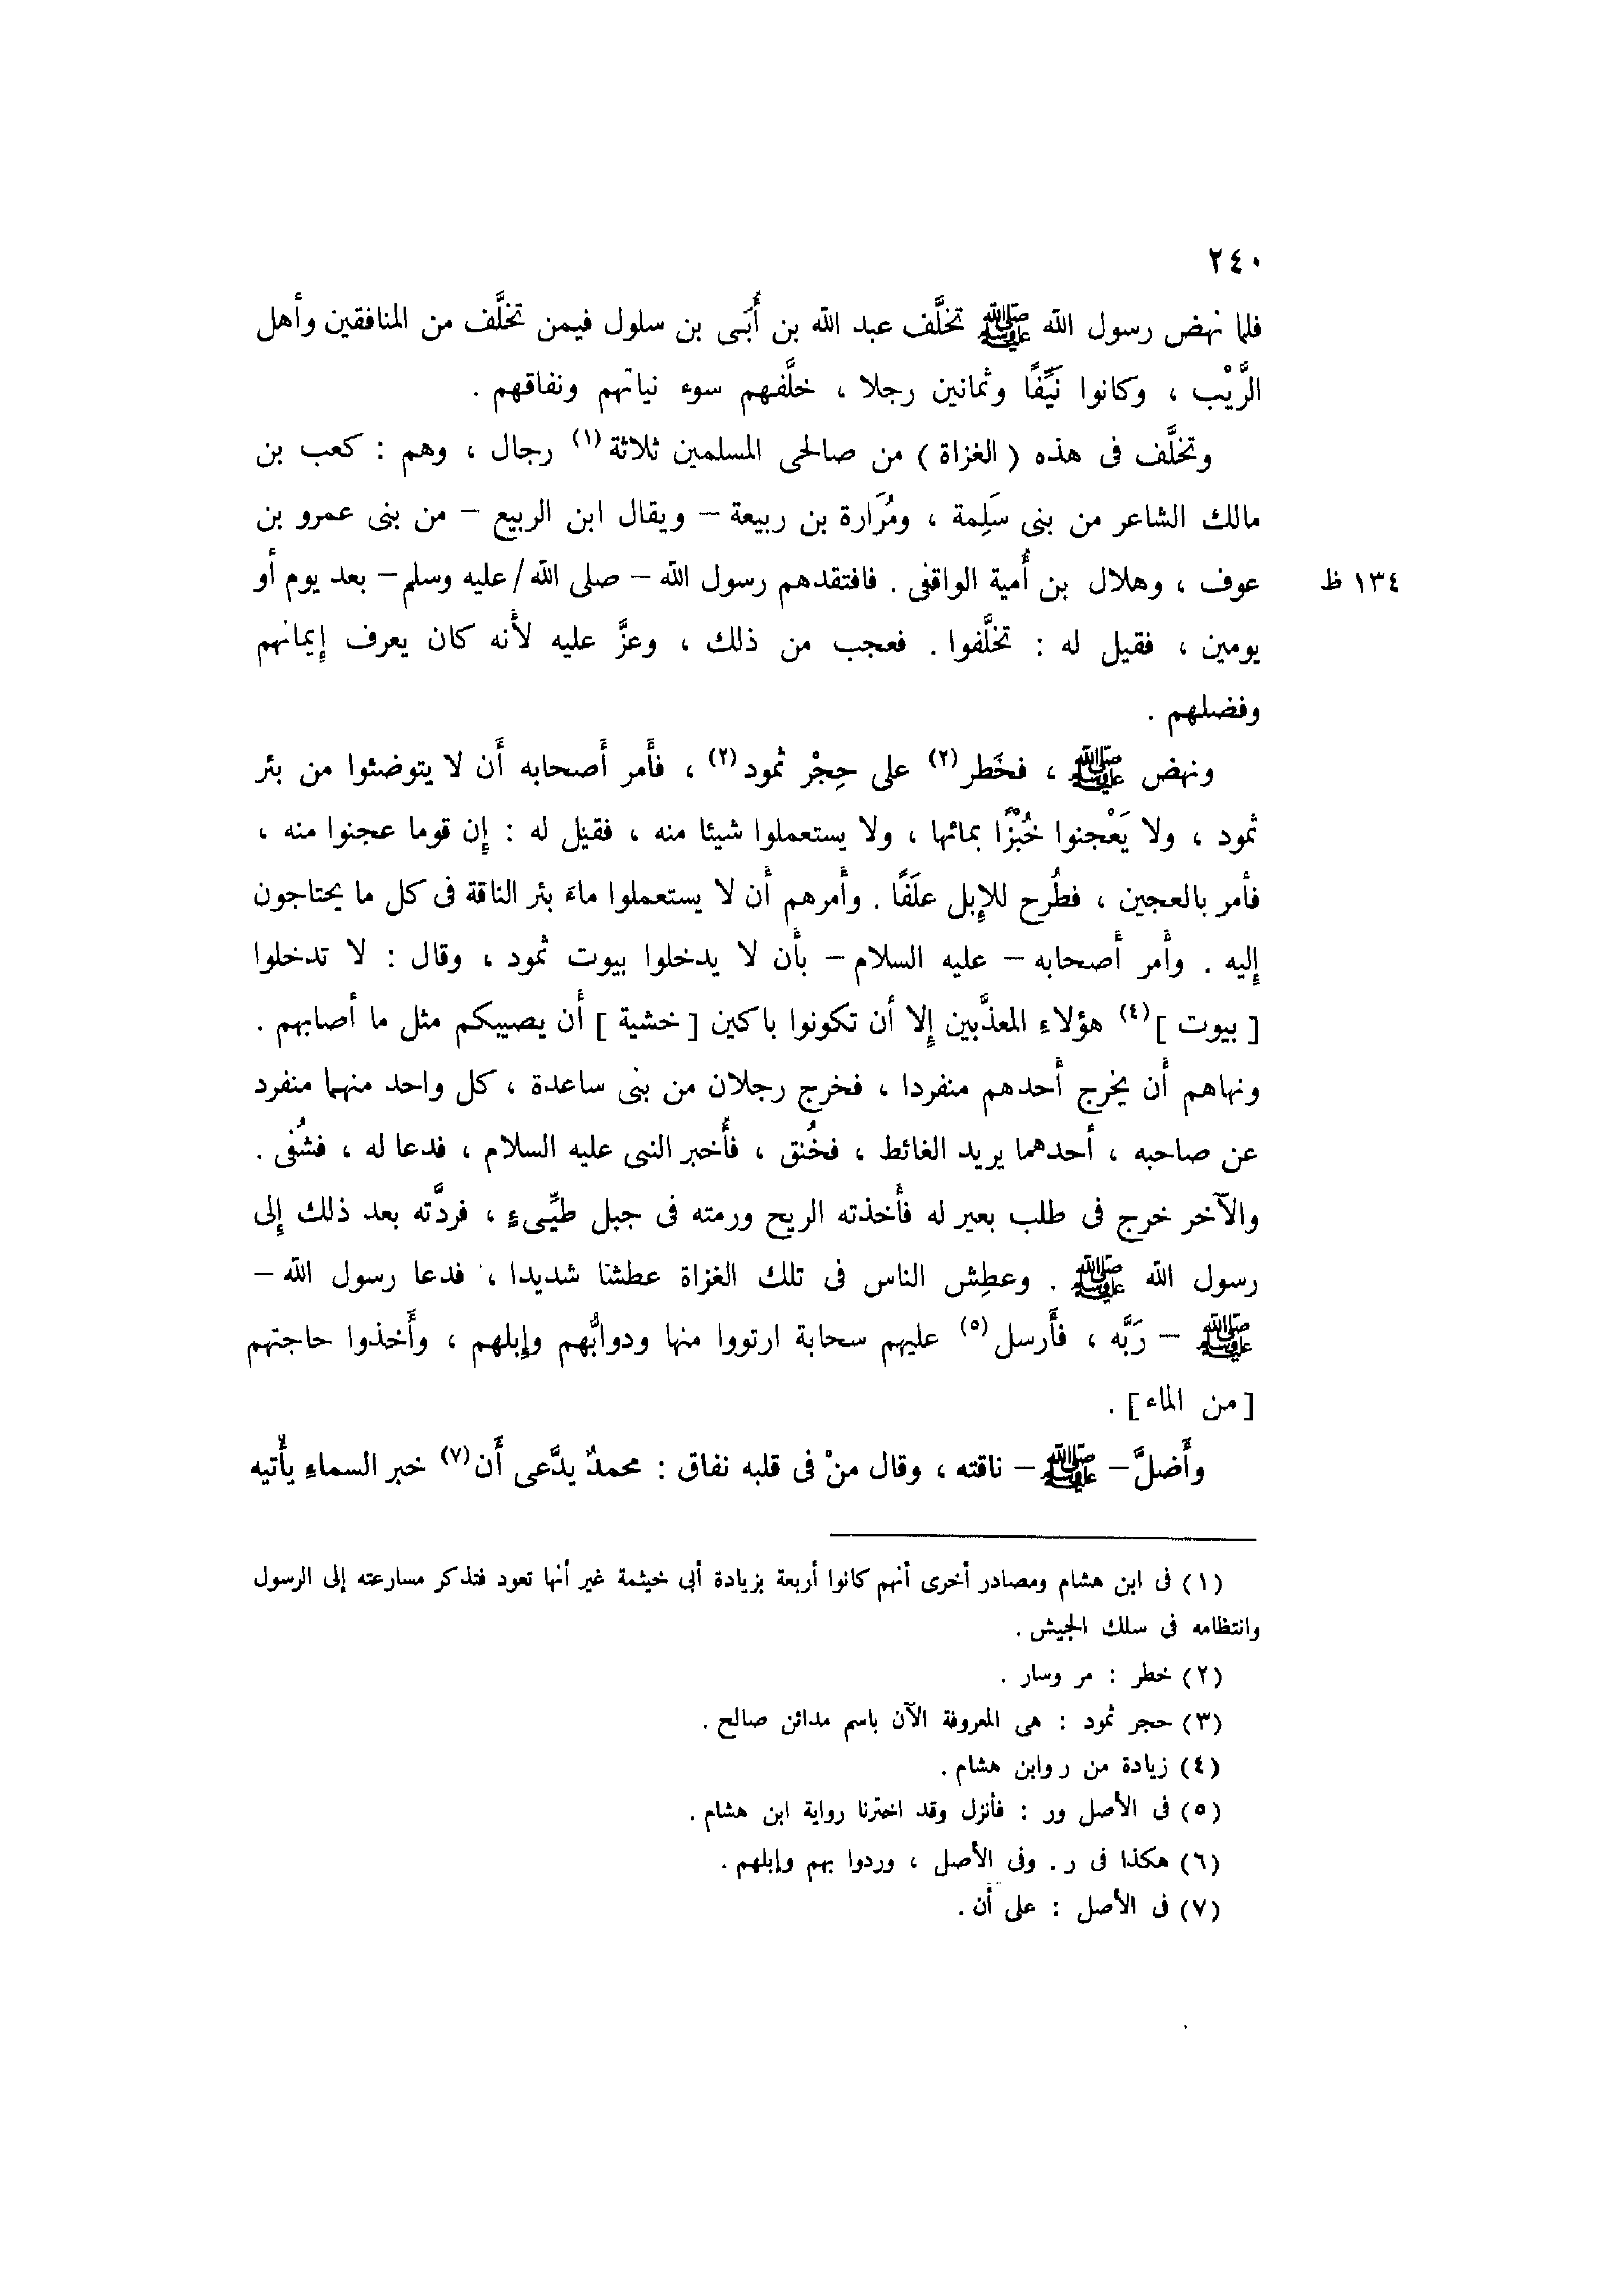 ٢٤٠
فلما نهض رسول الله ﷺ تخلَّف عبد الله بن أُبَىّ بن سلول فيمن تخلَّف من المنافقين وأهل
الرَّيْب ، وكانوا نَيِّفًا وثمانين رجلا ، خلَّفهم سوء نياتهم ونفاقهم .
وتخلَّف فى هذه ( الغزاة ) من صالحى المسلمين ثلاثة (١) رجال ، وهم : كعب بن
مالك الشاعر من بنى سَلِمة ، ومُرَارة بن ربيعة – ويقال ابن الربيع – من بنى عمرو بن
عوف ، وهلال بن أُمية الواقفى . فافتقدهم رسول الله – صلى الله / عليه وسلم – بعد يوم أو
١٣٤ ظ
يومين ، فقيل له : تخلَّفوا . فعجب من ذلك ، وعزَّ عليه لأنه كان يعرف إيمانهم
وفضلهم .
ونهض ﷺ ، فخَطر (٢) على حِجْر ثمود (٢) ، فأَمر أَصحابه أَن لا يتوضئوا من بئر
ثمود ، ولا يَعْجنوا خُبْزًا بمائها ، ولا يستعملوا شيئا منه ، فقيل له : إن قوما عجنوا منه ،
فأمر بالعجين ، فطُرح للإبل علَفًا . وأَمرهم أَن لا يستعملوا ماءَ بئر الناقة فى كل ما يحتاجون
إليه . وأَمر أَصحابه – عليه السلام – بأَن لا يدخلوا بيوت ثمود ، وقال : لا تدخلوا
[ بيوت ] (٤) هؤلاءِ المعذَّبين إلا أن تكونوا باكين [ خشية ] أَن يصيبكم مثل ما أصابهم .
ونهاهم أَن يخرج أَحدهم منفردا ، فخرج رجلان من بنى ساعدة ، كل واحد منهما منفرد
عن صاحبه ، أحدهما يريد الغائط ، فخُنق ، فأُخبر النبى عليه السلام ، فدعا له ، فشُفى .
والآخر خرج فى طلب بعير له فأَخذته الريح ورمته فى جبل طيِّىءٍ ، فردَّته بعد ذلك إلى
رسول الله ﷺ . وعطِش الناس فى تلك الغزاة عطشًا شديدا ، فدعا رسول الله –
ﷺ – رَبَّه ، فأَرسل (٥) عليهم سحابة ارتووا منها ودوابُّهم وإبلهم ، وأَخذوا حاجتهم
[ من الماء ] .
وأَضلَّ – ﷺ – ناقته ، وقال منْ فى قلبه نفاق : محمدٌ يدَّعى أَن (٧) خبر السماءِ يأْتيه
(١) فى ابن هشام ومصادر أخرى أنهم كانوا أربعة بزيادة أبى خيثمة غير أنها تعود فتذكر مسارعته إلى الرسول
وانتظامه فى سلك الجيش .
(٢) خطر : مر وسار .
(٣) حجر ثمود : هى المعروفة الآن باسم مدائن صالح .
(٤) زيادة من ر وابن هشام .
(٥) فى الأصل ور : فأنزل وقد اخترنا رواية ابن هشام .
(٦) هكذا فى ر . وفى الأصل ، وردوا بهم وإبلهم .
(٧) فى الأصل : على أن .